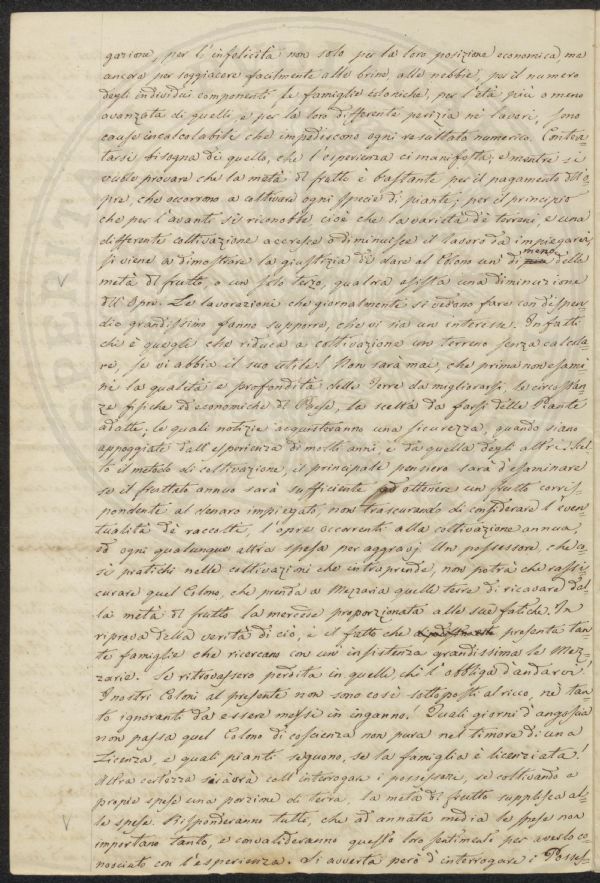 gazione, per l'infelicità non solo per la loro posizione economica, ma
ancora per soggiacere facilmente alle brine, alle nebbie, per il numero
degli individui componenti le famiglie coloniche, per l'età più o meno
avanzata di quelli, e per la loro differente perizia nè lavori, sono
cause incalcolabili che impediscono ogni resultato numerico. Conten-
tarsi bisogna di quello, che l'esperienza ci manifesta; e mentre si
vuole provare che la metà di frutti è bastante per il pagamento dell'o-
pre, che occorrono a coltivare ogni specie di piante; per il principio
che per l'avanti si riconobbe cioè che la varietà dè terreni e una
differente coltivazione accresce o diminuisce il lavoro da impiegarvi
si viene a dimostrare la giustizia di dare al Colono un' di meno della
metà del frutto, o un solo terzo, qualora esista una diminuzione
dell'Opre. Le lavorazioni che giornalmente si vedono fare con dispen-
dio grandissimo fanno supporre, che vi sia un interesse. Infatti
chi è quegli che riduca a coltivazione un terreno senza calcola-
re, se vi abbia il suo utile! Non sarà mai, che prima non esami-
ni la qualità e profondità delle Terre da migliorarsi, le circostan-
ze fisiche ed economiche del Paese, la scelta da farsi delle Piante
adatte; le quali notizie acquisteranno una sicurezza, quando siano
appoggiate dall'esperienza di molti anni, e da quella degli altri. Scel-
to il metodo di coltivazione, il principale pensiero sarà d'esaminare
se il fruttato annuo sarà sufficiente ad ottenere un frutto corris-
pondente al denaro impiegato, non trascurando di considerare l'even-
tualità dè raccolti, l'opre occorrenti alla coltivazione annua,
ed ogni qualunque altra spesa per aggravj. Un possessore, che co-
sì pratichi nelle coltivazioni che intraprende, non potrà che rassi-
curare quel Colono, che prenda a Mezzaria quelle terre di ricavare dal-
la metà del frutto la mercede proporzionata alle sue fatiche. In
riprova della verità di ciò, è il fatto che presenta tan-
te famiglie che ricercano con un'insistenza grandissima le Mez-
zarie. Se ritrovassero perdita in quelle, chi l'obbliga d'andarvi!
I nostri Coloni al presente non sono così sottoposti al ricco, nè tan-
to ignoranti da essere messi in inganno! Quali giorni d'angoscia
non passa quel Colono di coscienza non pura nel timore di una
Licenza, e quali pianti seguono, se la famiglia è licenziata!
Altra certezza si avrà coll'interrogare i possessori, se coltivando a
proprie spese una porzione di terra, la metà del frutto supplisca al-
le spese. Risponderanno tutti, che ad annata media le spese non
importano tanto, e convalideranno questo loro sentimento per averlo co-
nosciuto con l'esperienza. Si avverta però d'interrogare i Posses-